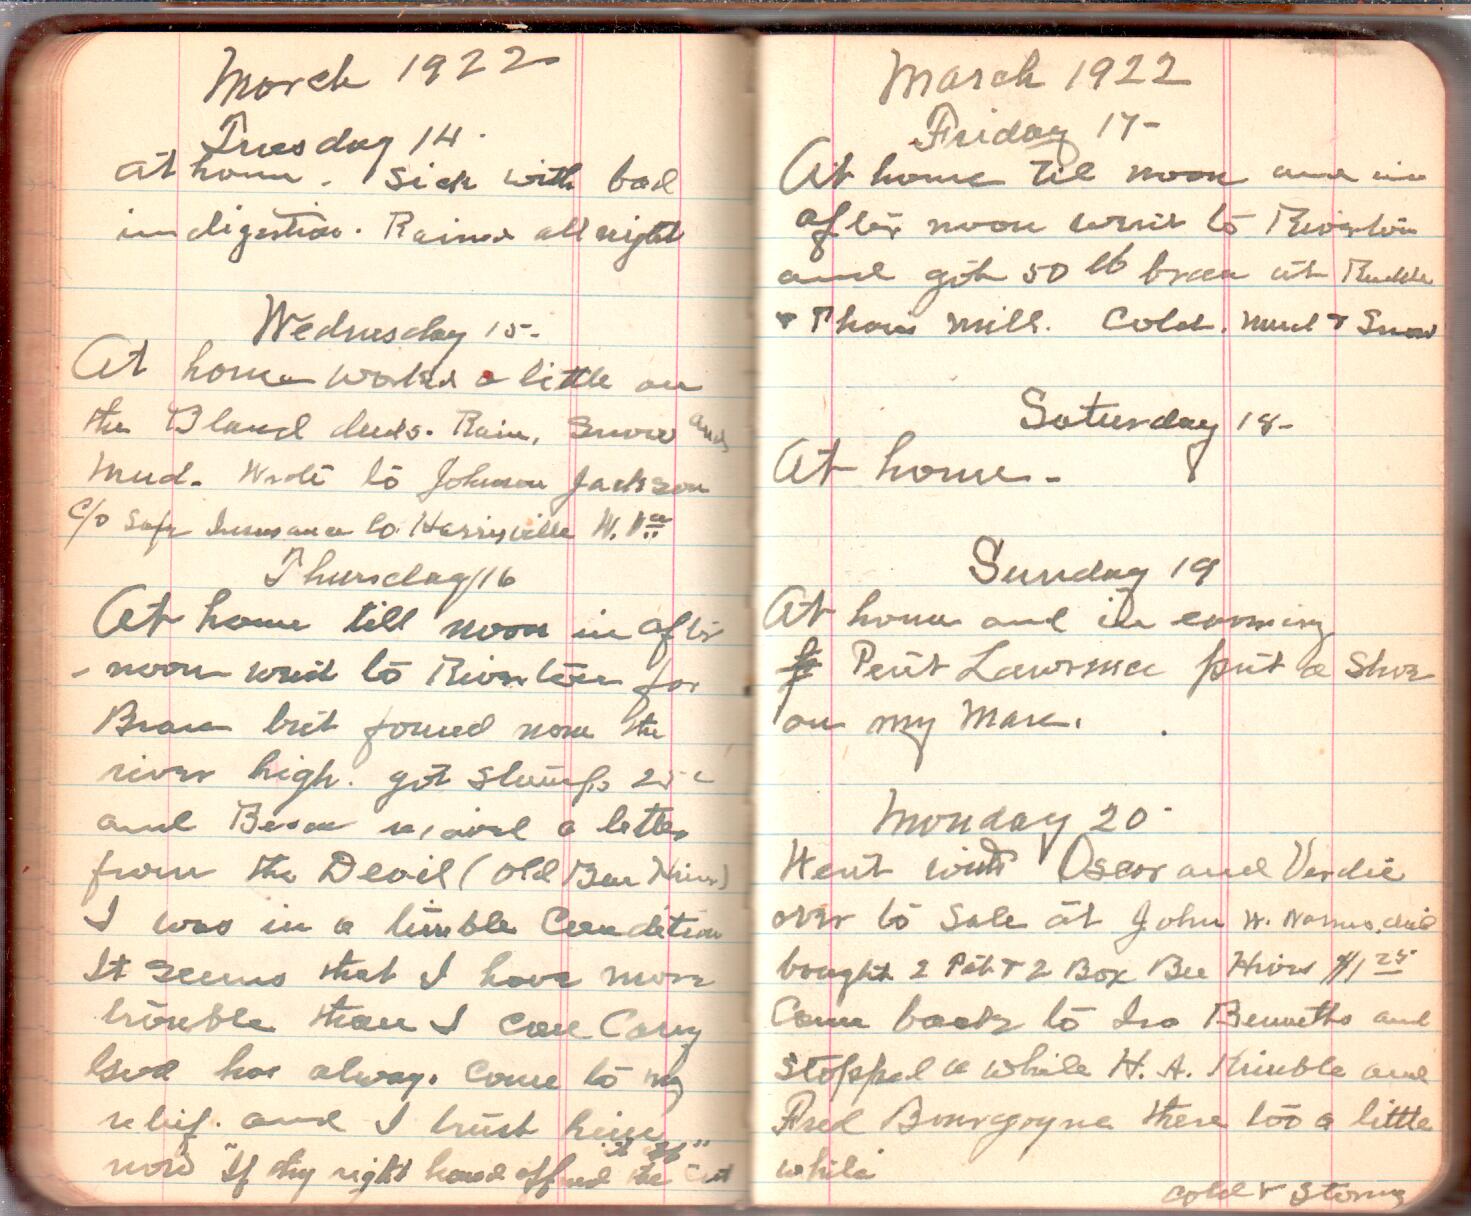 March 1922
Tuesday 14.
at home. Sick with bad
indigestion. Rained all night
Wednesday 15-
At home worked a little on
the Bland deeds. Rain, Snow and
mud. Wrote to Johnson Jackson
c/o Safe Insurance Co Harrisville W. Va
Thursday 16
At home till noon in after
- noon went to Riverton for
Bran but found none the
river high. got stamps 25c
and received a letter
from the Devil (Old Ben )
I was in a terrible Condition
It seems that I have more
trouble than I can Carry
God has always come to my
relief. and I trust him
now "If thy right hand offend thee Cut
it off"
March 1922
Friday 17-
At home til noon and in
after noon went to Riverton
and got 50 lb bran at Ruddle
+ mill. Cold. Mud + Snow
Saturday 18-
At home-
Sunday 19
At home and in evening
Pent Lawrence put a Shoe
on my Mare.
Monday 20-
Went with Oscar and Verdie
over to Sale at John W. and
bought 2 + 2 Box Bee Hives $1 25
Came back to Ira Bennetts and
stopped a while H. A. Kimble and
Fred Bourgoyne there too a little
while
cold + Stormy